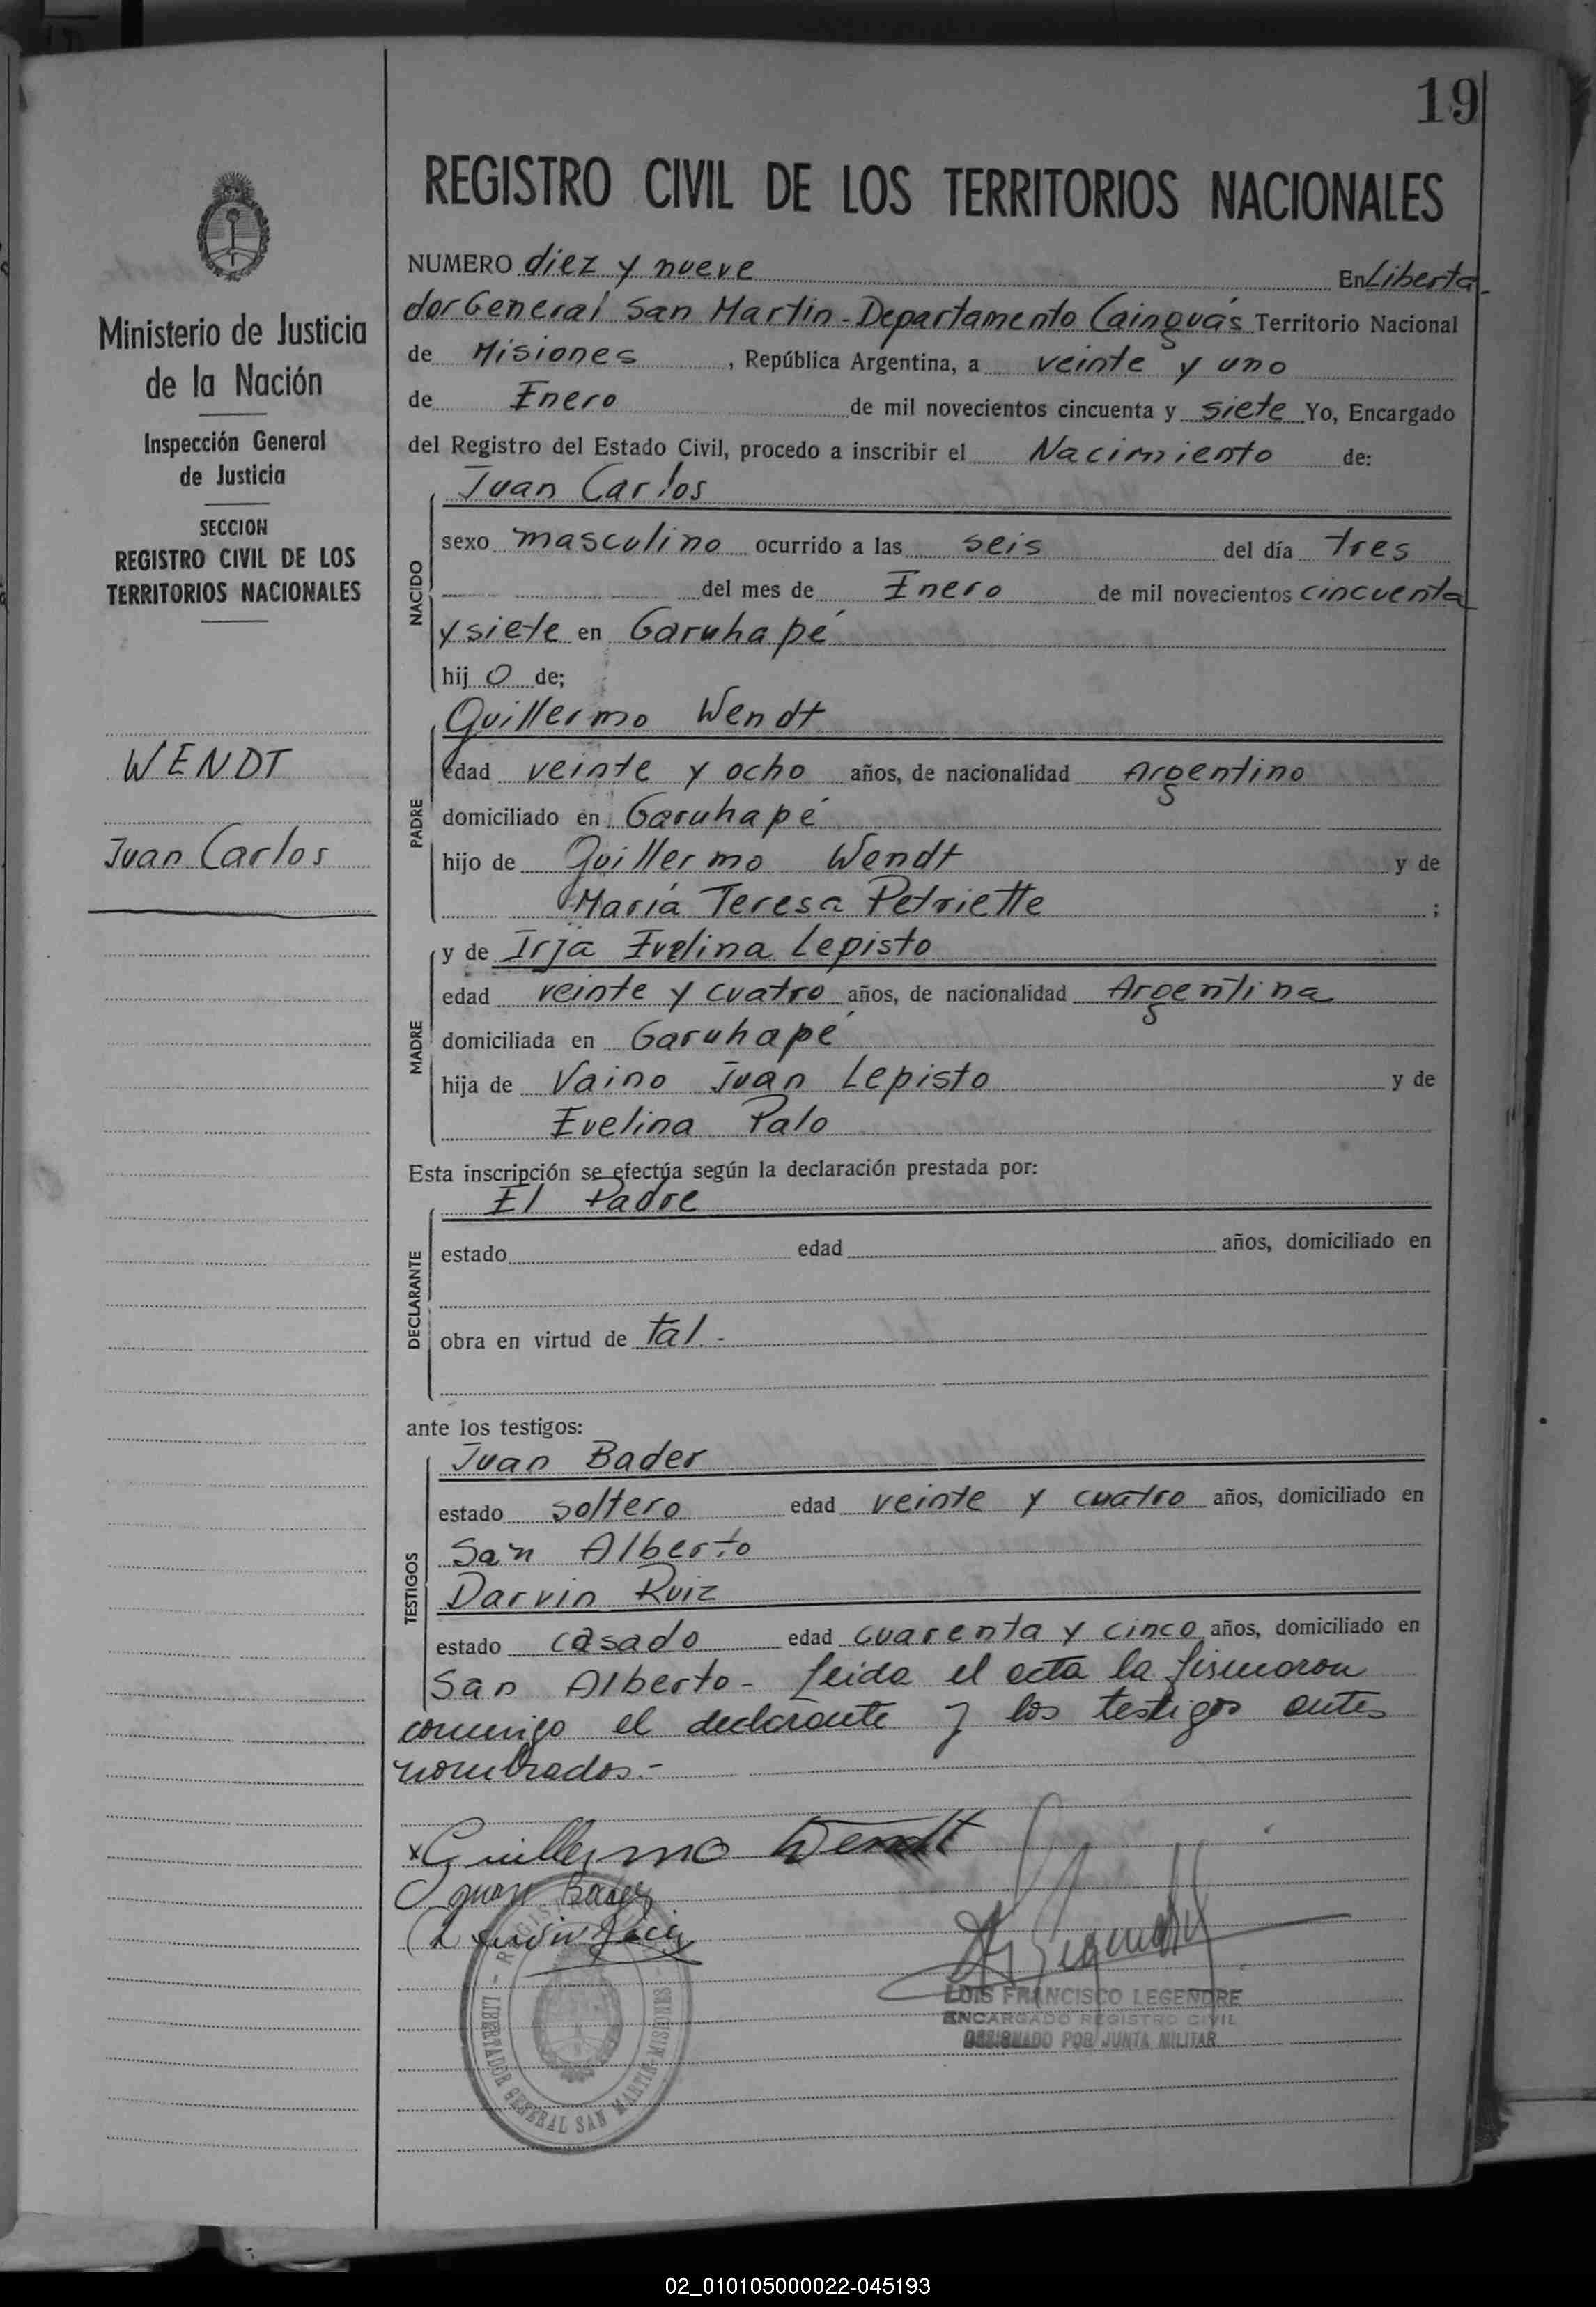 19
REGISTRO CIVIL DE LOS TERRITORIOS NACIONALES
Ministerio de Justicia
de la Nación
Inspección General
de Justicia
SECCION
REGISTRO CIVIL DE LOS
TERRITORIOS NACIONALES
WENDT
Juan Carlos
NUMERO diez y nueve En Liberta-
dor General San Martin - Departamento Cainguás Territorio Nacional
de Misiones, República Argentina, a veinte y uno
de Enero de mil novecientos cincuenta y siete Yo, Encargado
del Registro del Estado Civil, procedo a inscribir el Nacimiento de:
NACIDO
Juan Carlos
sexo masculino ocurrido a las seis del día tres
del mes de Enero de mil novecientos cincuenta
y siete en Garuhapé
hijo de;
PADRE
Guillermo Wendt
edad veinte y ocho años, de nacionalidad Argentino
domiciliado en Garuhapé
hijo de Guillermo Wendt y de
María Teresa Petriette;
MADRE
y de Irja Evelina Lepisto
edad veinte y cuatro años, de nacionalidad Argentina
domiciliada en Garuhapé
hija de Vaino Juan Lepisto y de
Evelina Palo
Esta inscripción se efectúa según la declaración prestada por:
DECLARANTE
El Padre
estado edad años, domiciliado en
obra en virtud de tal.-
ante los testigos:
TESTIGOS
Juan Bader
estado soltero edad veinte y cuatro años, domiciliado en
San Alberto
Darvin Ruiz
estado casado edad cuarenta y cinco años, domiciliado en
San Alberto - Leida el acta la firmaron
conmigo el declarante y los testigos antes
nombrados.-
x Guillermo Wendt
Juan Bader
LUIS FRANCISCO LEGENDRE
ENCARGADO REGISTRO CIVIL
DESIGNADO POR JUNTA MILITAR
LIBERTADOR GENERAL SAN MARTIN MISIONES
02_010105000022-045193